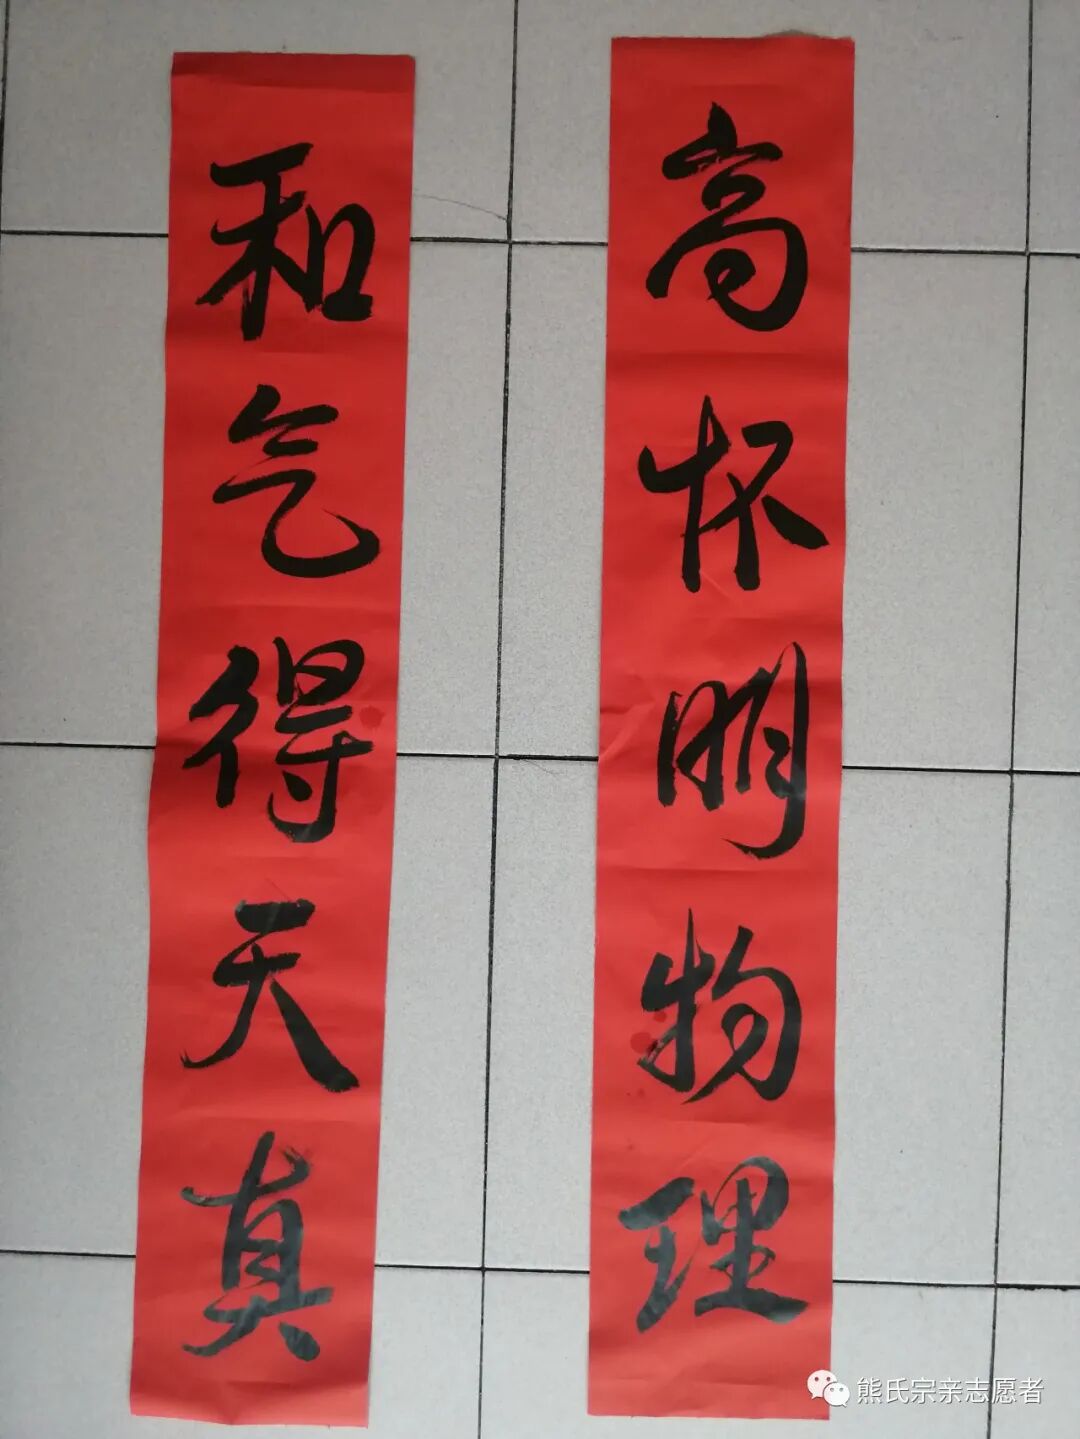 高怀明物理
和气得天真
熊氏宗亲志愿者